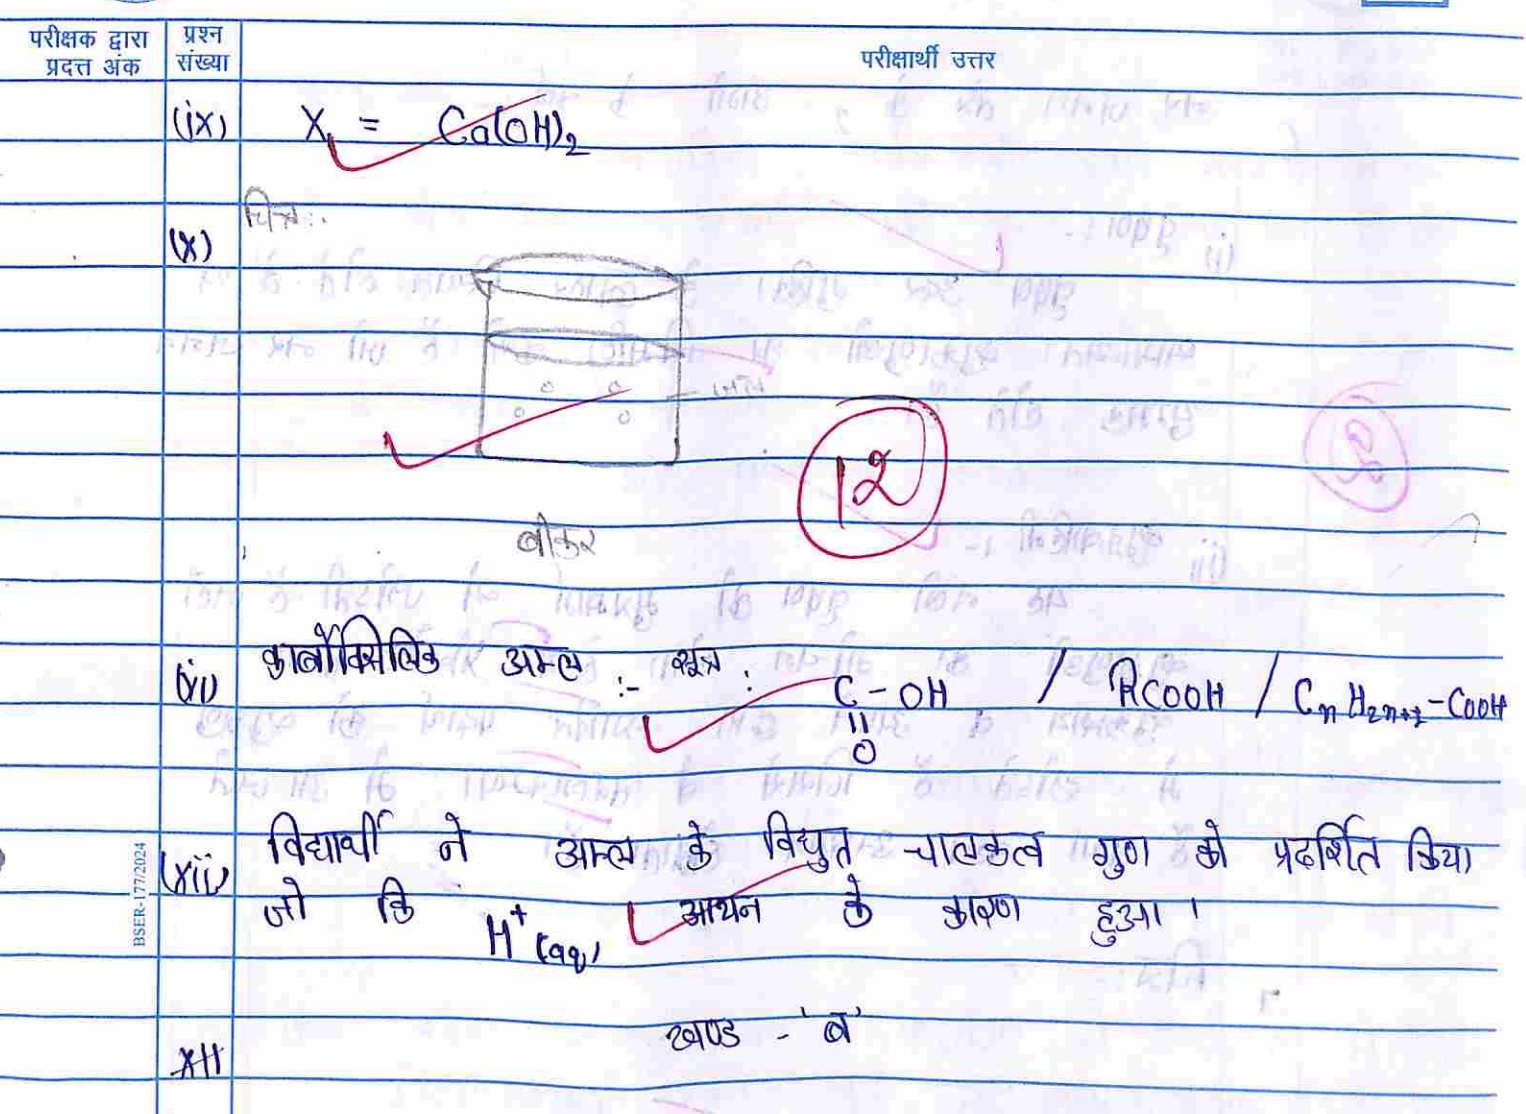 परीक्षक द्वारा प्रदत्त अंक
प्रश्न संख्या
परीक्षार्थी उत्तर
(ix) X = Ca(OH)₂
(x) चित्र :
12
बीकर
(xi) कार्बोक्सिलिक अम्ल :- सूत्र : C - OH / RCOOH / CnH2n+1-COOH
||
O
(xii) विद्यार्थी ने अम्ल के विद्युत चालकत्व गुण को प्रदर्शित किया
जो कि H⁺(aq) आयन के कारण हुआ ।
BSER-177/2024
खण्ड - 'ब'